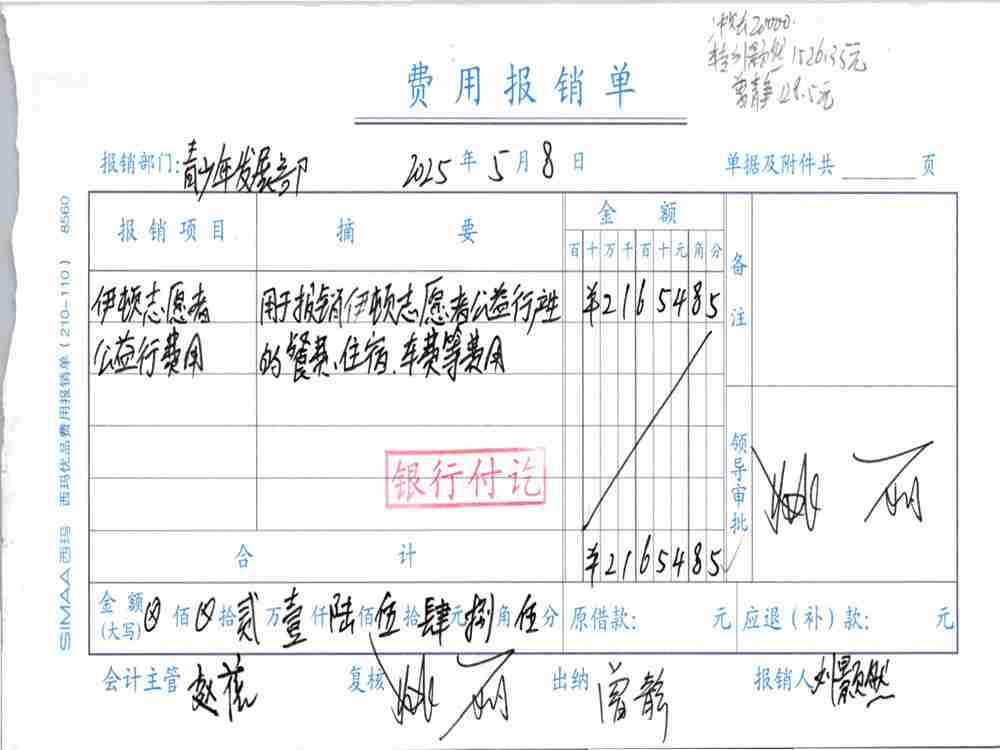 20000.
转刘颢然 1526.35元
曾静 128.5元
费用报销单
报销部门:青少年发展部 2025年5月8日 单据及附件共____页
报销项目 摘要 金额 备注
百十万千百十元角分
伊顿志愿者 用于报销伊顿志愿者公益行产生 ¥2165485
公益行费用 的餐费、住宿、车费等费用
银行付讫
领导审批
合计 ¥2165485
金额(大写)⊗佰⊗拾贰万壹仟陆佰伍拾肆元捌角伍分 原借款: 元 应退(补)款: 元
会计主管 赵 复核 出纳 曾静 报销人 刘颢然
SIMAA西玛 西玛优品费用报销单(210-110) 8560